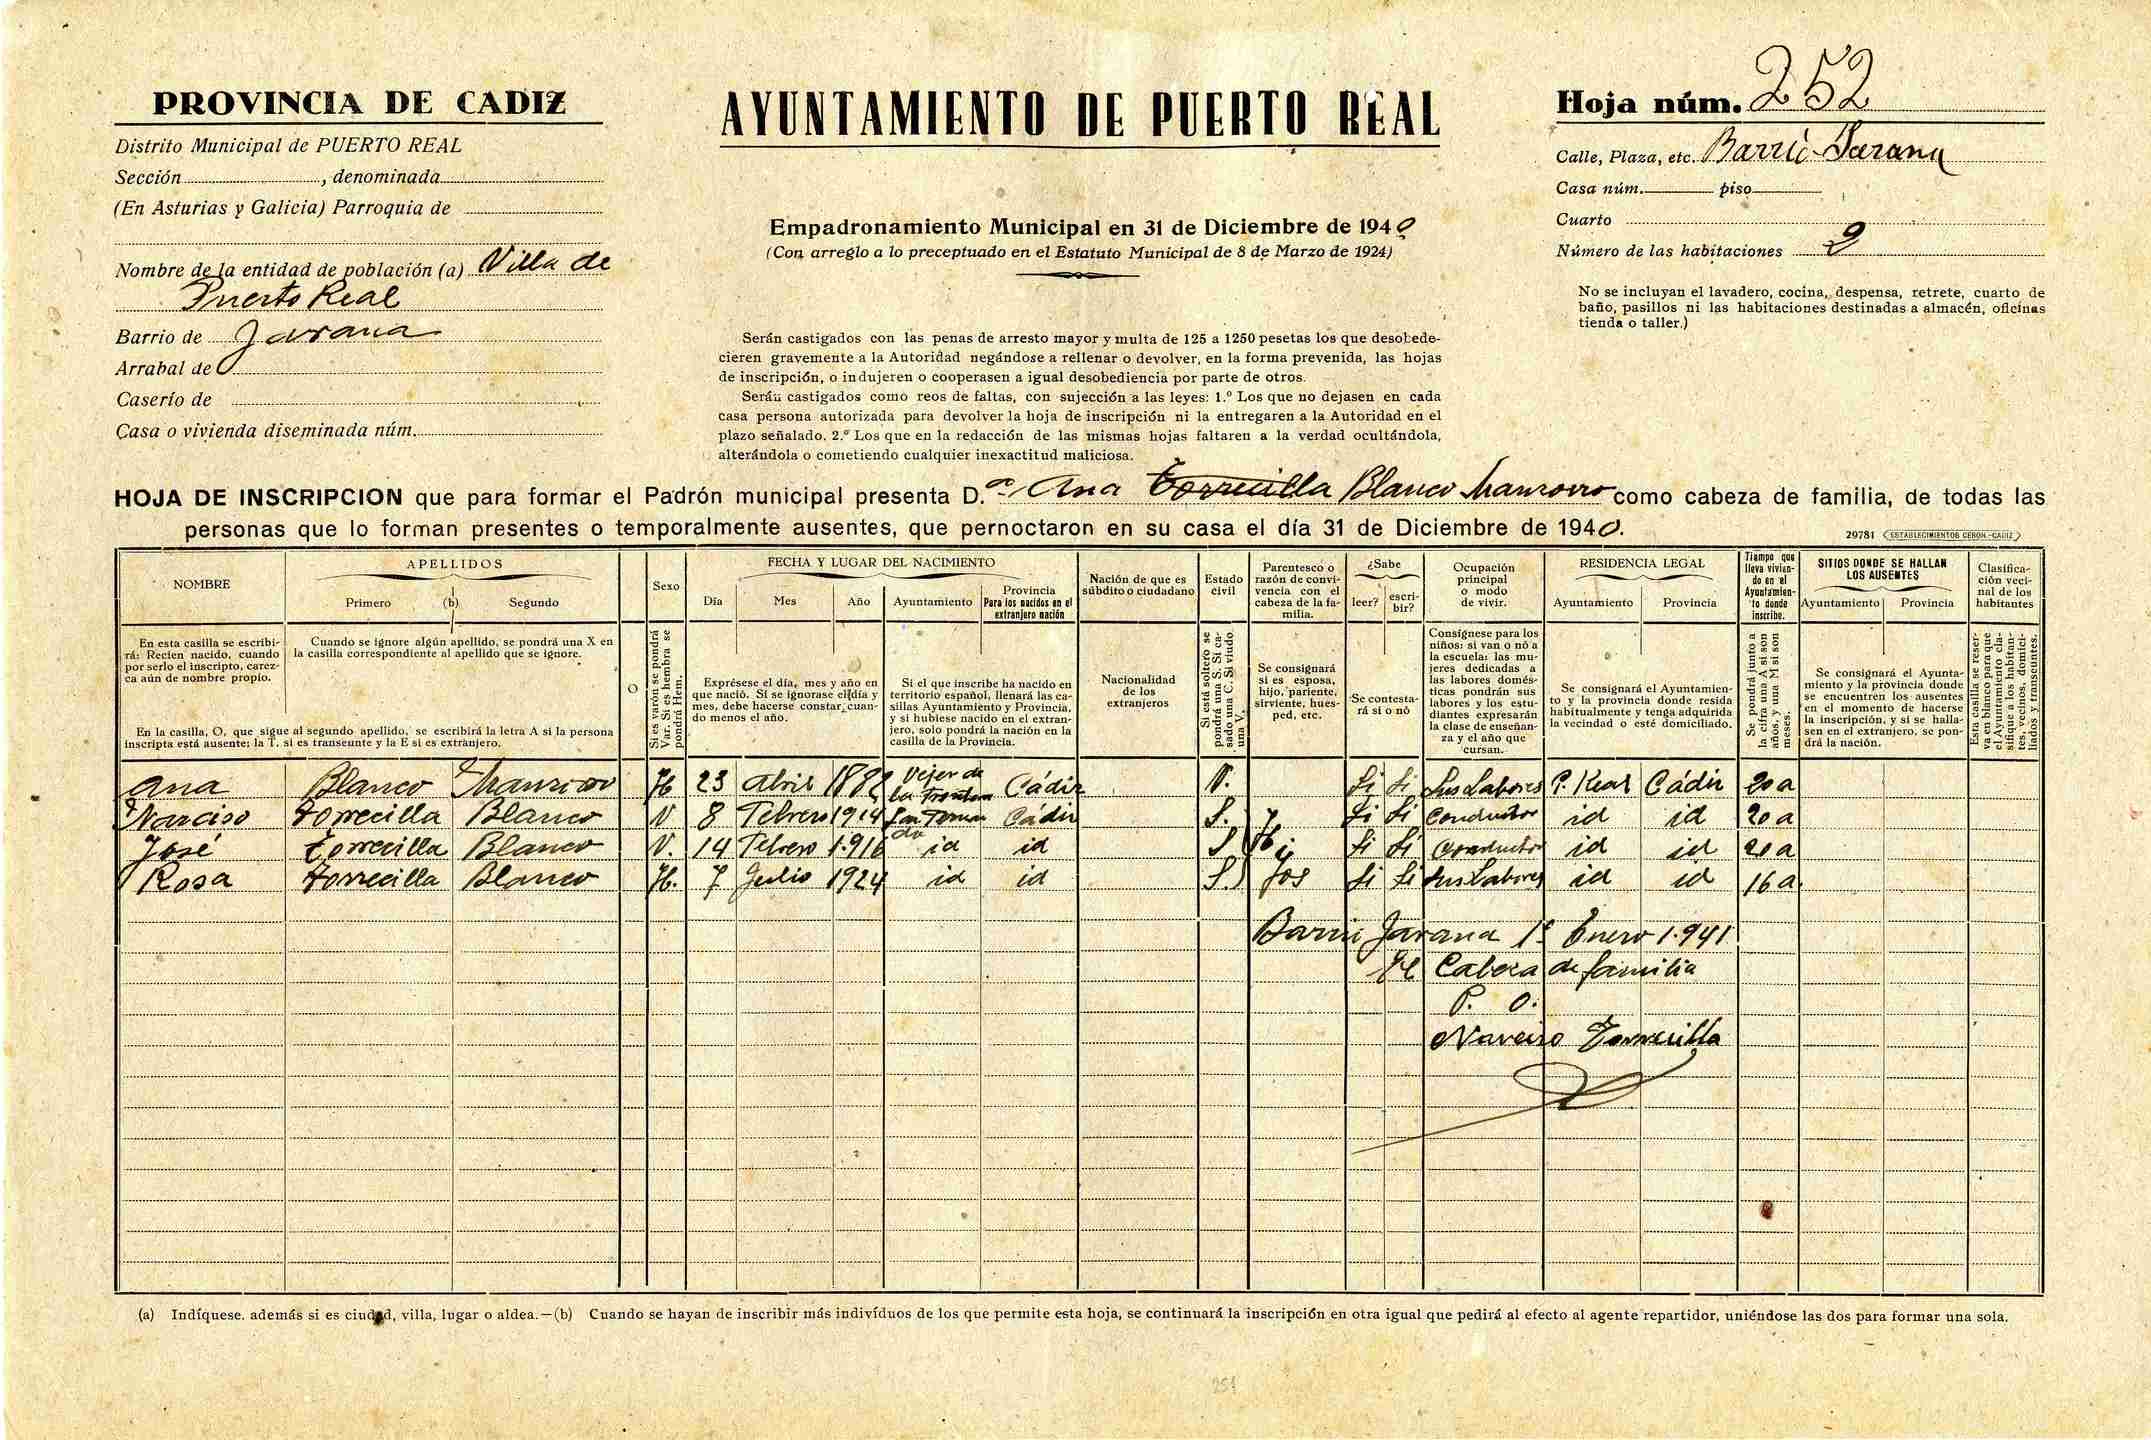 PROVINCIA DE CADIZ
Distrito Municipal de PUERTO REAL
Sección , denominada
(En Asturias y Galicia) Parroquia de
Nombre de la entidad de población (a) Villa de
Puerto Real
Barrio de Jarana
Arrabal de
Caserío de
Casa o vivienda diseminada núm.
AYUNTAMIENTO DE PUERTO REAL
Empadronamiento Municipal en 31 de Diciembre de 1940
(Con arreglo a lo preceptuado en el Estatuto Municipal de 8 de Marzo de 1924)
Serán castigados con las penas de arresto mayor y multa de 125 a 1250 pesetas los que desobede-
cieren gravemente a la Autoridad negándose a rellenar o devolver, en la forma prevenida, las hojas
de inscripción, o indujeren o cooperasen a igual desobediencia por parte de otros.
Serán castigados como reos de faltas, con sujección a las leyes: 1.º Los que no dejasen en cada
casa persona autorizada para devolver la hoja de inscripción ni la entregaren a la Autoridad en el
plazo señalado. 2.º Los que en la redacción de las mismas hojas faltaren a la verdad ocultándola,
alterándola o cometiendo cualquier inexactitud maliciosa.
Hoja núm. 252
Calle, Plaza, etc. Barrio Jarana
Casa núm. piso
Cuarto
Número de las habitaciones 2
No se incluyan el lavadero, cocina, despensa, retrete, cuarto de
baño, pasillos ni las habitaciones destinadas a almacén, oficinas
tienda o taller.)
HOJA DE INSCRIPCION que para formar el Padrón municipal presenta D.ª Ana Torrecilla Blanco Manzorro como cabeza de familia, de todas las
personas que lo forman presentes o temporalmente ausentes, que pernoctaron en su casa el día 31 de Diciembre de 1940.
29781 ESTABLECIMIENTOS CERON.-CADIZ
NOMBRE
En esta casilla se escribi-
rá: Recien nacido, cuando
por serlo el inscripto, carez-
ca aún de nombre propio.
APELLIDOS
Primero (b) Segundo
Cuando se ignore algún apellido, se pondrá una X en
la casilla correspondiente al apellido que se ignore.
En la casilla, O, que sigue al segundo apellido, se escribirá la letra A si la persona
inscripta está ausente; la T. si es transeunte y la E si es extranjero.
O
Sexo
Si es varón se pondrá
Var. Si es hembra se
pondrá Hem.
FECHA Y LUGAR DEL NACIMIENTO
Día Mes Año Ayuntamiento
Provincia
Para los nacidos en el
extranjero nación
Exprésese el día, mes y año en
que nació. Si se ignorase el día y
mes, debe hacerse constar cuan-
do menos el año.
Si el que inscribe ha nacido en
territorio español, llenará las ca-
sillas Ayuntamiento y Provincia,
y si hubiese nacido en el extran-
jero, solo pondrá la nación en la
casilla de la Provincia.
Nación de que es
súbdito o ciudadano
Nacionalidad
de los
extranjeros
Estado
civil
Si está soltero se
pondrá una S. Si ca-
sado una C. Si viudo
una V.
Parentesco o
razón de convi-
vencia con el
cabeza de la fa-
milia.
Se consignará
si es esposa,
hijo, pariente,
sirviente, hues-
ped, etc.
¿Sabe
leer? escri-
bir?
Se contesta-
rá si o nó
Ocupación
principal
o modo
de vivir.
Consígnese para los
niños: si van o nó a
la escuela: las mu-
jeres dedicadas a
las labores domés-
ticas pondrán sus
labores y los estu-
diantes expresarán
la clase de enseñan-
za y el año que
cursan.
RESIDENCIA LEGAL
Ayuntamiento Provincia
Se consignará el Ayuntamien-
to y la provincia donde resida
habitualmente y tenga adquirida
la vecindad o esté domiciliado.
Tiempo que
lleva vivien-
do en el
Ayuntamien-
to donde
inscribe.
Se pondrá junto a
la cifra una A si son
años, y una M si son
meses.
SITIOS DONDE SE HALLAN
LOS AUSENTES
Ayuntamiento Provincia
Se consignará el Ayunta-
miento y la provincia donde
se encuentren los ausentes
en el momento de hacerse
la inscripción, y si se halla-
sen en el extranjero, se pon-
drá la nación.
Clasifica-
ción veci-
nal de los
habitantes
Esta casilla se reser-
va en blanco para que
el Ayuntamiento cla-
sifique a los habitan-
tes, vecinos, domici-
liados y transeuntes.
Ana Blanco Manzorro H 23 Abril 1882 Vejer de la Frontera Cádiz V. Si Si Sus Labores P. Real Cádiz 20 a
Narciso Torrecilla Blanco V 8 Febrero 1914 San Fernando Cádiz S. Hijos Si Si Conductor id id 20 a
José Torrecilla Blanco V. 14 Febrero 1.916 id id S Si Si Conductor id id 20 a
Rosa Torrecilla Blanco H. 7 Julio 1924 id id S. Si Si Sus Labores id id 16 a
Barrio Jarana 1º Enero 1.941
El Cabeza de familia
P. O.
Narciso Torrecilla
(a) Indíquese. además si es ciudad, villa, lugar o aldea.—(b) Cuando se hayan de inscribir más indivíduos de los que permite esta hoja, se continuará la inscripción en otra igual que pedirá al efecto al agente repartidor, uniéndose las dos para formar una sola.
251